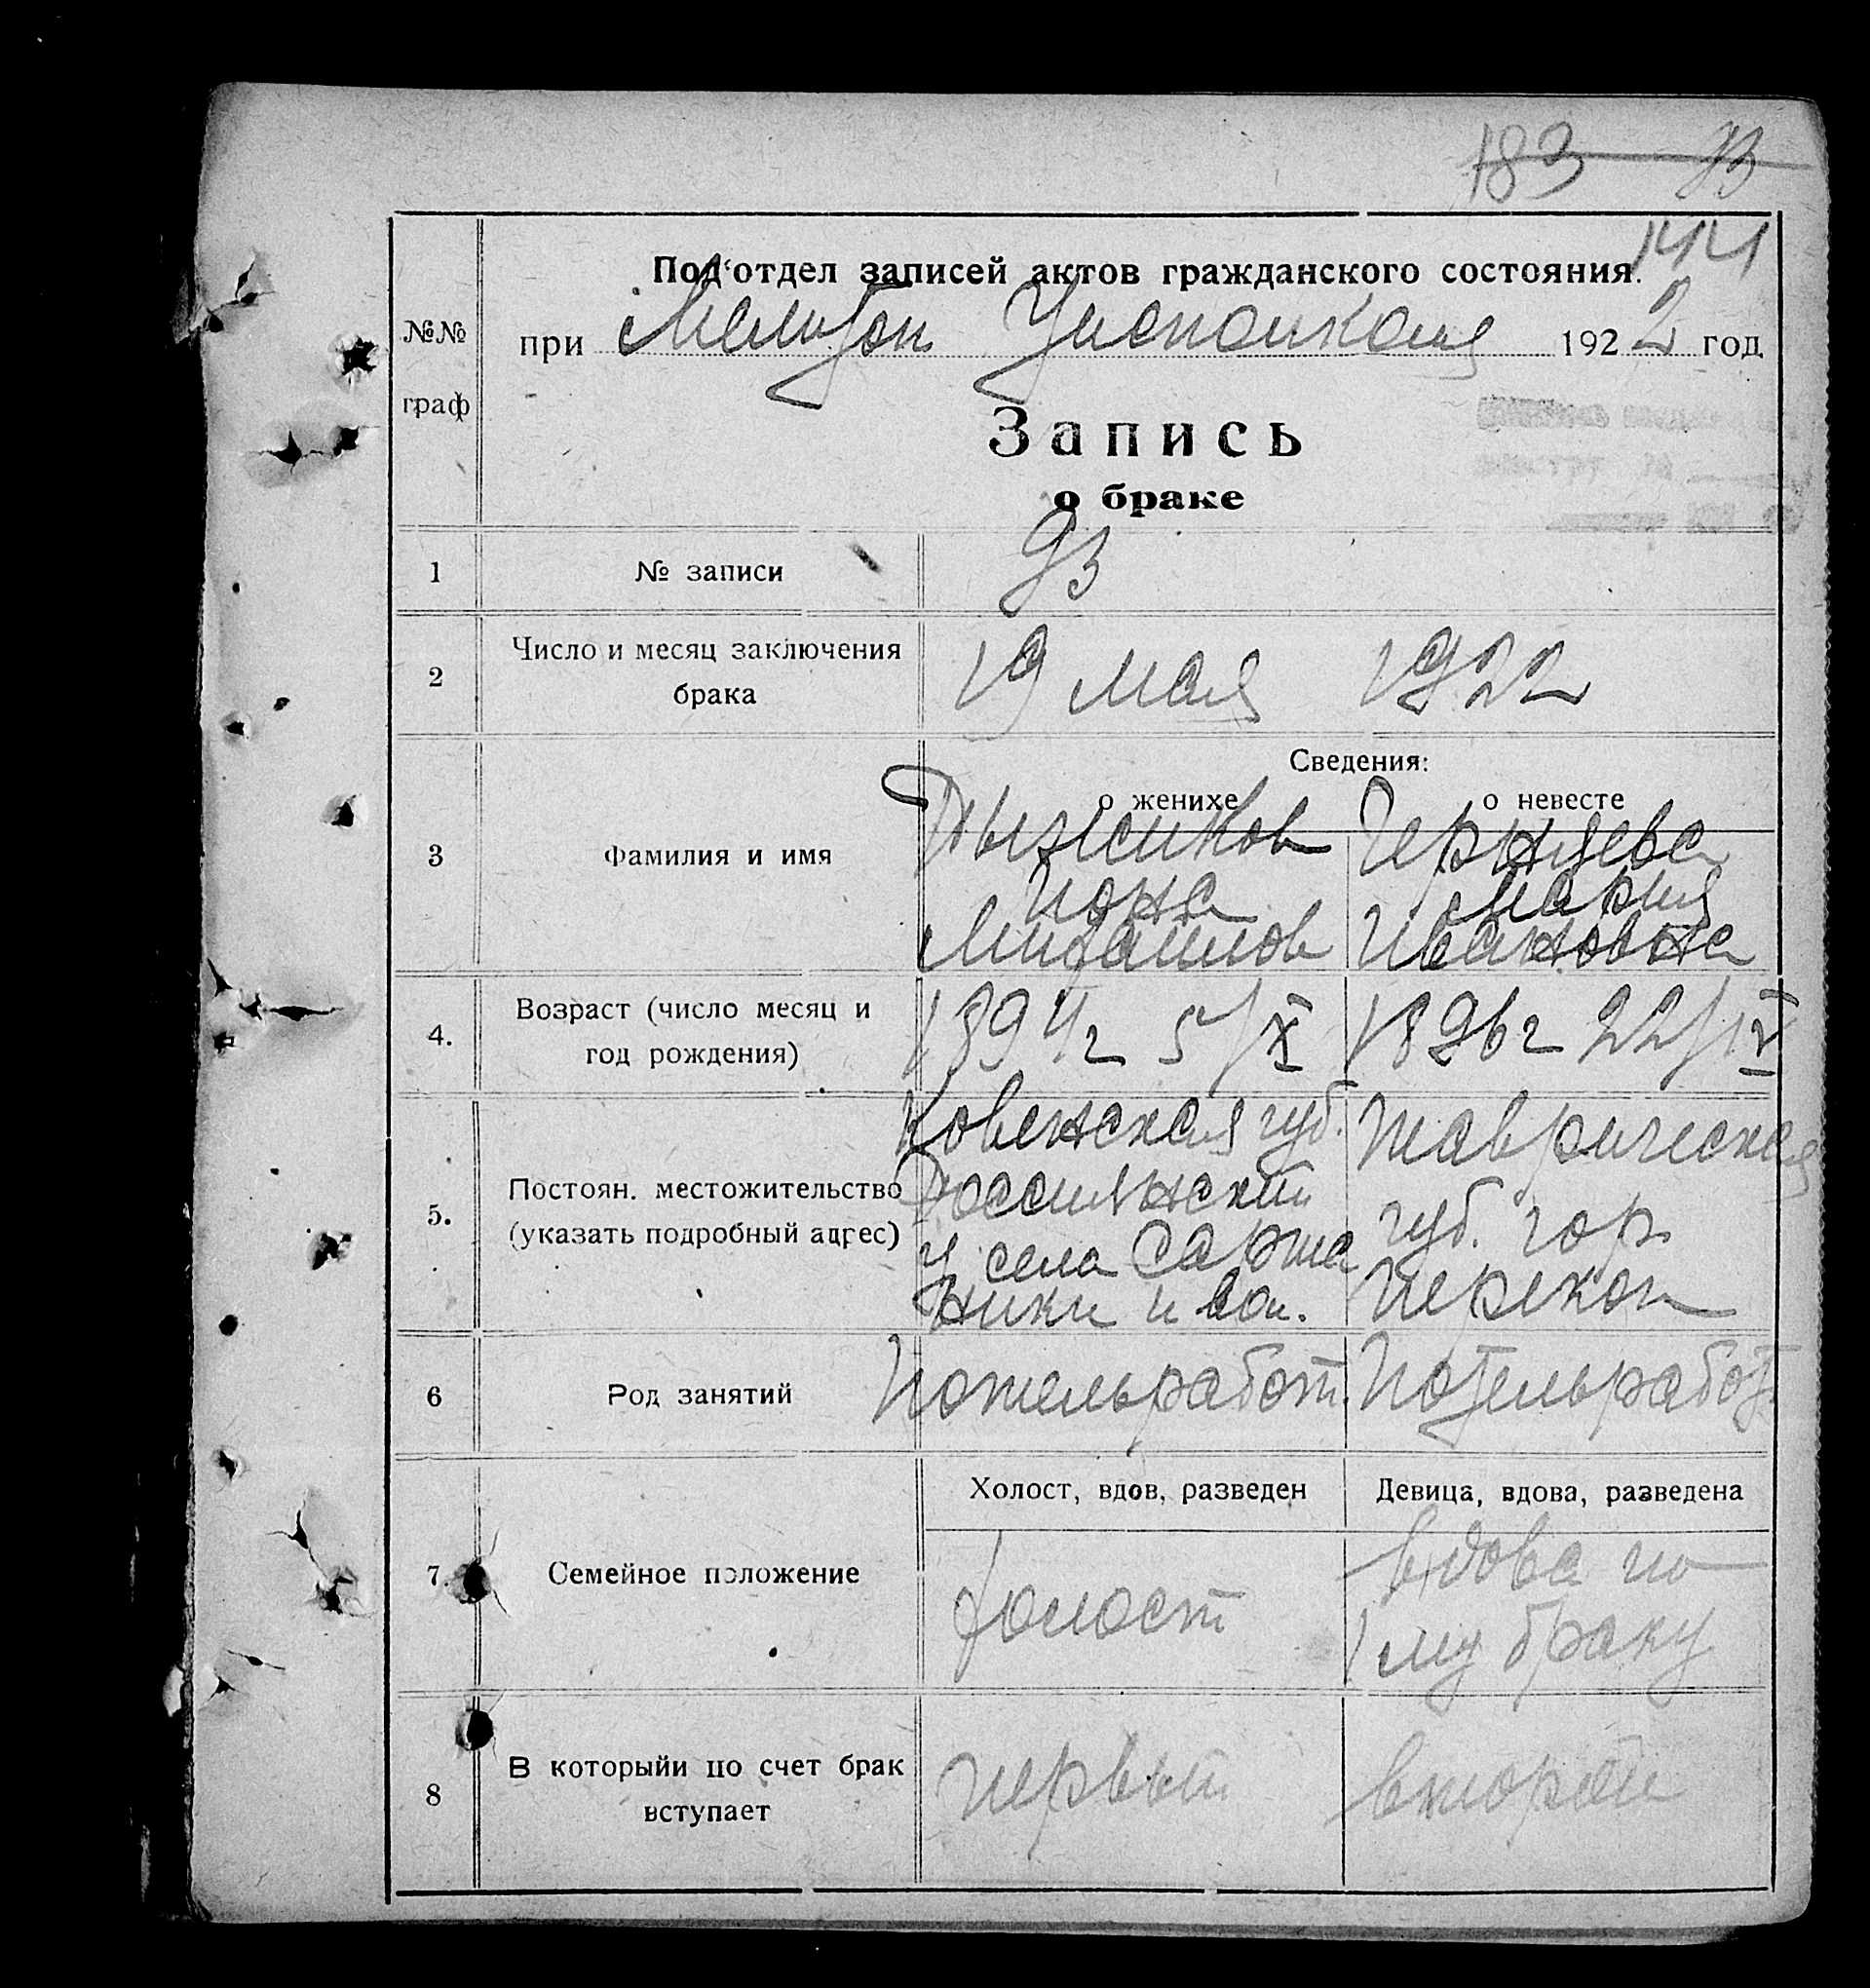 183 93
144
Подотдел записей актов гражданского состояния.
№№ граф
при Мелитоп Уисполкома 1922 год
Запись
о браке
1 № записи 93
2 Число и месяц заключения брака 19 мая 1922
Сведения:
о женихе о невесте
3 Фамилия и имя
Рыжиков Чернцева
Иона Мария
Михайлов Ивановна
4. Возраст (число месяц и год рождения) 1894 г 5/X 1896 г 22/IV
5. Постоян. местожительство (указать подробный адрес)
Ковенская губ. Таврическая
Россиенский губ. гор.
у села Перекоп
6 Род занятий
Потельработ. Потельработ.
Холост, вдов, разведен Девица, вдова, разведена
7. Семейное положение
холост вдова по
1 му браку
8 В которыйи по счет брак вступает
первый второй